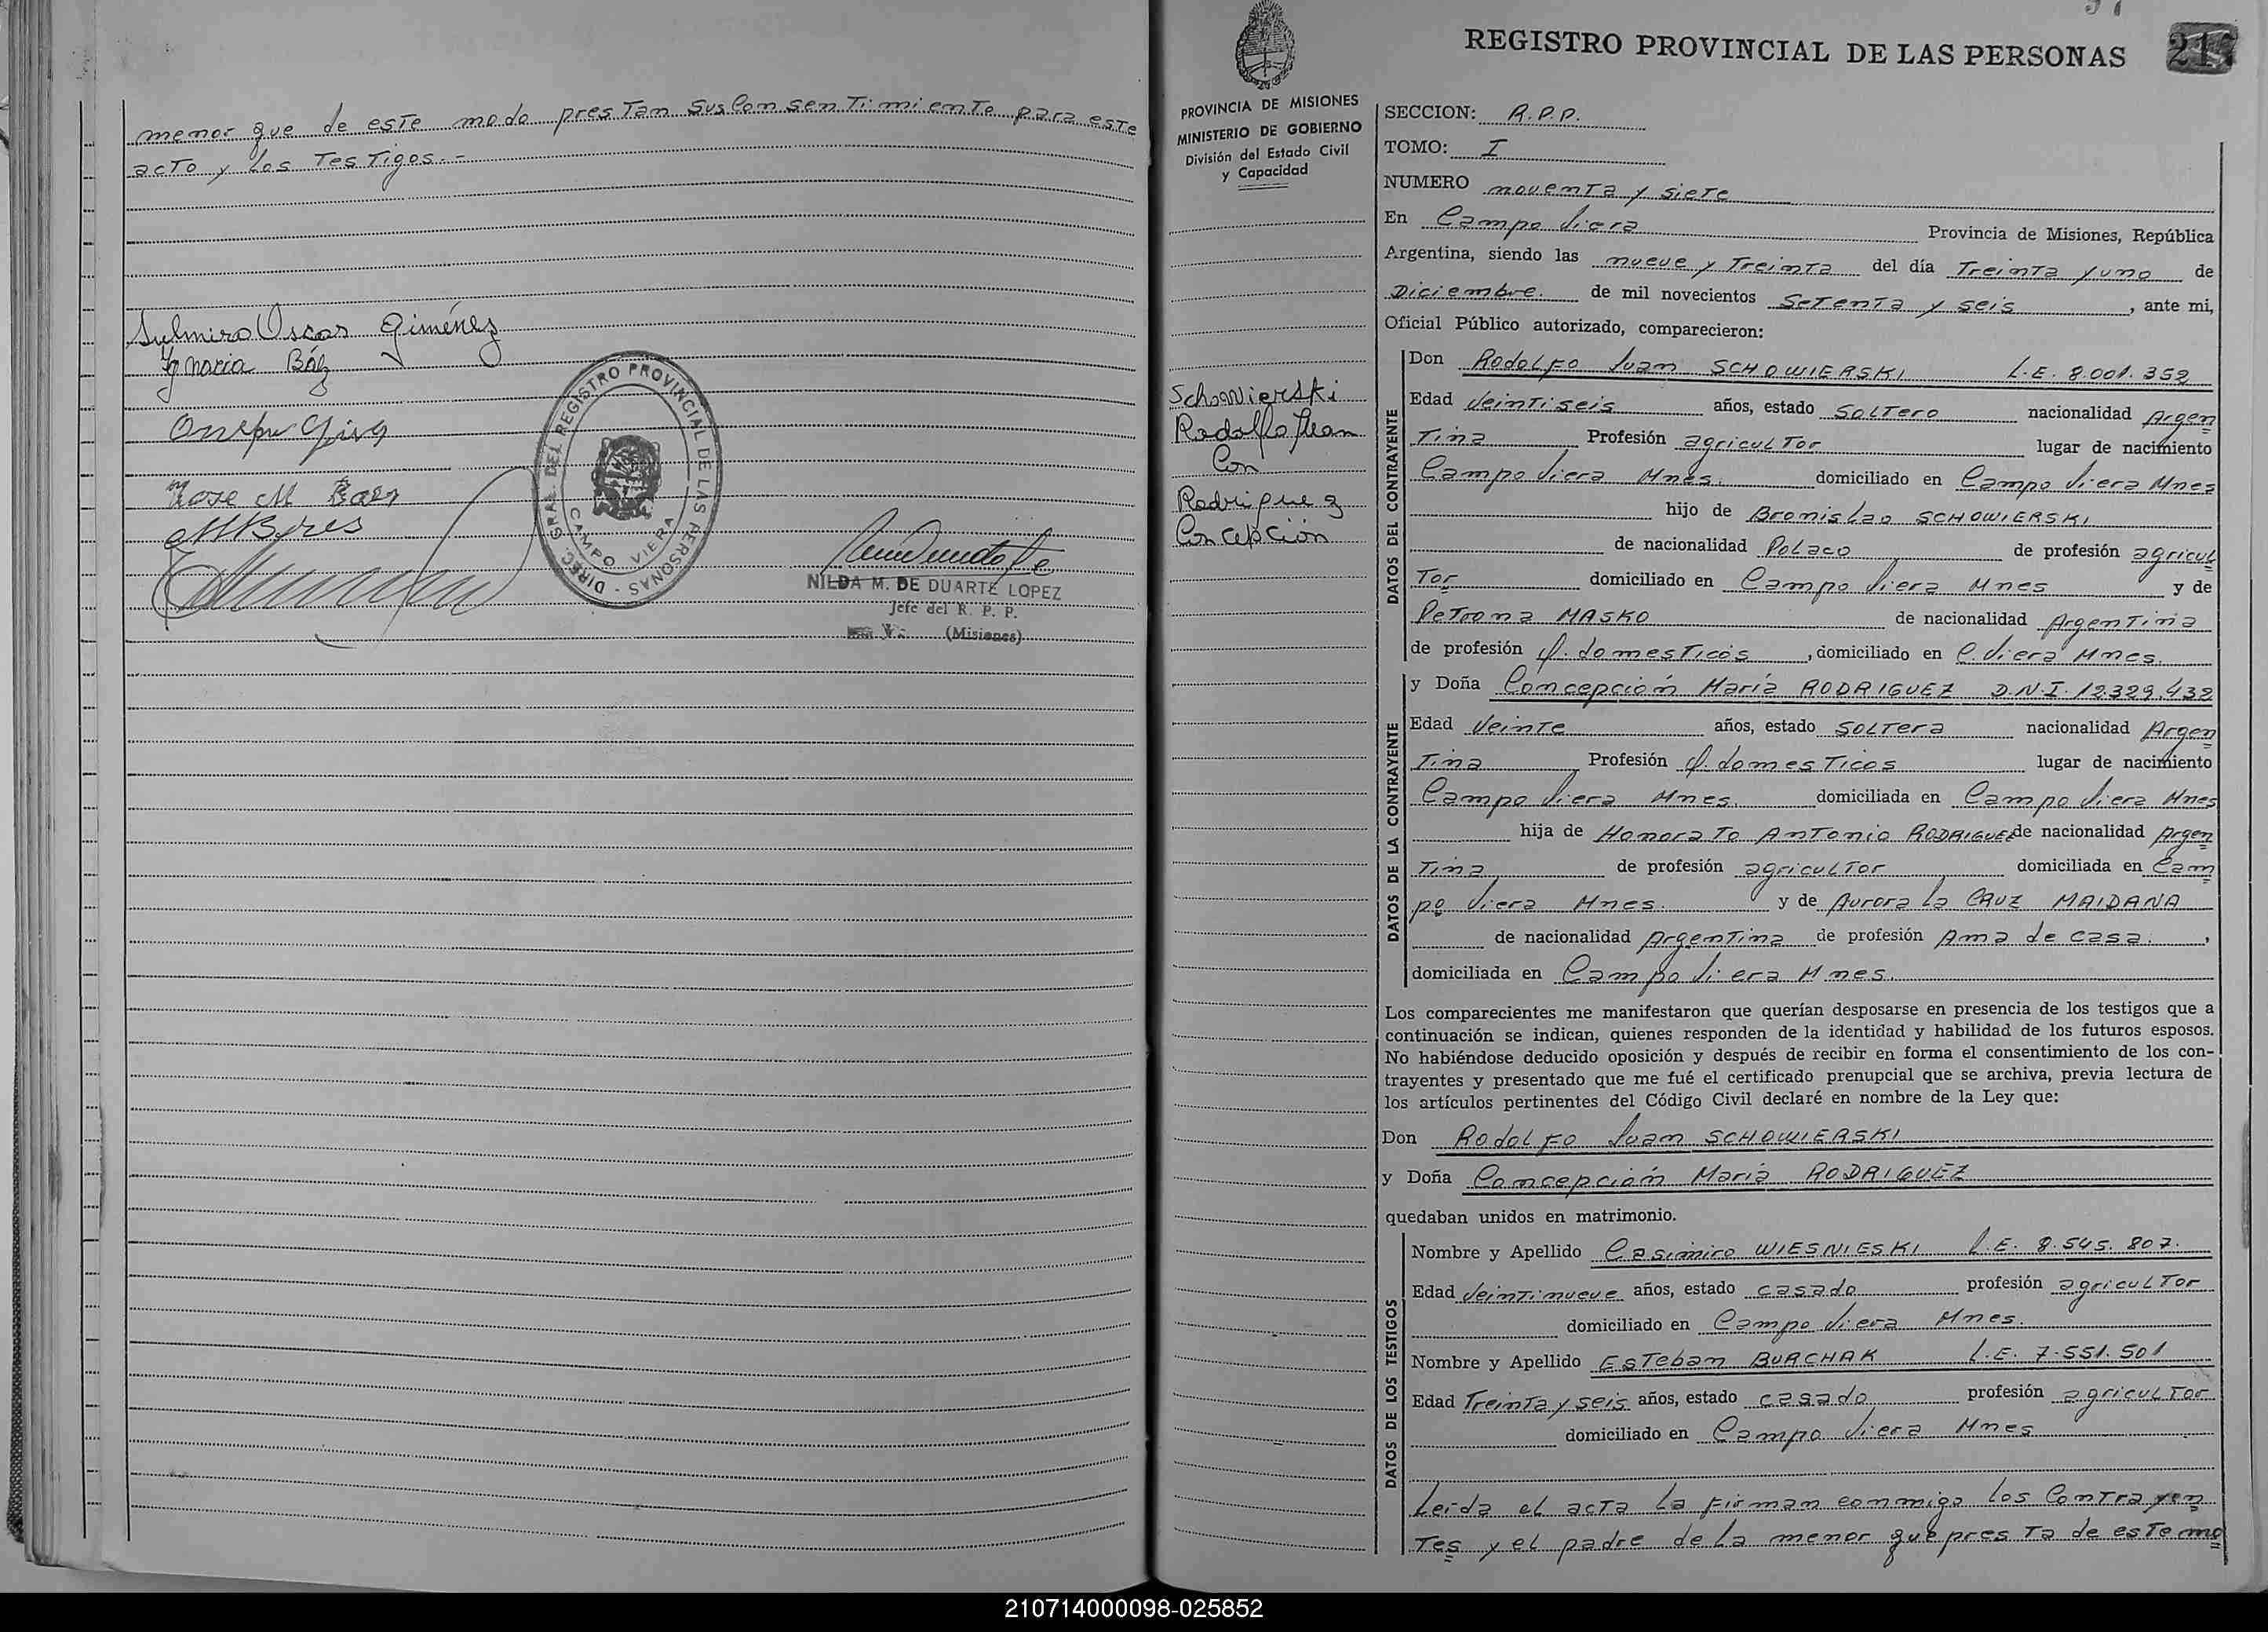 menor que de este modo prestan sus consentimiento para este
acto y los Testigos.-
Oscar Giménez
Ignacia Báez
Jose M Baez
DIREC. GRAL. DEL REGISTRO PROVINCIAL DE LAS PERSONAS - CAMPO VIERA
NILDA M. DE DUARTE LOPEZ
Jefe del R. P. P.
(Misiones)
REGISTRO PROVINCIAL DE LAS PERSONAS
PROVINCIA DE MISIONES
MINISTERIO DE GOBIERNO
División del Estado Civil
y Capacidad
Schowierski
Rodolfo Juan
Con
Rodriguez
Concepción
SECCION: R.P.P.
TOMO: I
NUMERO noventa y siete
En Campo Viera Provincia de Misiones, República
Argentina, siendo las nueve y Treinta del día Treinta y uno de
Diciembre. de mil novecientos Setenta y seis, ante mi,
Oficial Público autorizado, comparecieron:
DATOS DEL CONTRAYENTE
Don Rodolfo Juan SCHOWIERSKI L.E. 8.001.352
Edad Veintiseis años, estado Soltero nacionalidad Argen
Tina Profesión agricultor lugar de nacimiento
Campo Viera Mnes. domiciliado en Campo Viera Mnes
hijo de Bronislao SCHOWIERSKI
de nacionalidad Polaco de profesión agricul
Tor domiciliado en Campo Viera Mnes y de
Petrona MASKO de nacionalidad Argentina
de profesión q. domesticos, domiciliado en C. Viera Mnes.
DATOS DE LA CONTRAYENTE
y Doña Concepción María RODRIGUEZ D.N.I. 12.329.432
Edad Veinte años, estado Soltera nacionalidad Argen
Tina Profesión q. domesticos lugar de nacimiento
Campo Viera Mnes. domiciliada en Campo Viera Mnes
hija de Honorato Antonio RODRIGUEZ de nacionalidad Argen
Tina de profesión agricultor domiciliada en Cam
po Viera Mnes. y de Aurora la CRUZ MAIDANA
de nacionalidad Argentina de profesión Ama de casa.,
domiciliada en Campo Viera Mnes.
Los comparecientes me manifestaron que querían desposarse en presencia de los testigos que a
continuación se indican, quienes responden de la identidad y habilidad de los futuros esposos.
No habiéndose deducido oposición y después de recibir en forma el consentimiento de los con-
trayentes y presentado que me fué el certificado prenupcial que se archiva, previa lectura de
los artículos pertinentes del Código Civil declaré en nombre de la Ley que:
Don Rodolfo Juan SCHOWIERSKI
y Doña Concepción María RODRIGUEZ
quedaban unidos en matrimonio.
DATOS DE LOS TESTIGOS
Nombre y Apellido Casimiro WIESNIESKI L.E. 8.545.807.
Edad Veintinueve años, estado casado profesión agricultor
domiciliado en Campo Viera Mnes.
Nombre y Apellido Esteban BURCHAK L.E. 7.551.501
Edad Treinta y seis años, estado casado profesión agricultor
domiciliado en Campo Viera Mnes
Leida el acta la firman conmigo los Contrayen
Tes y el padre de la menor que presta de este mo
210714000098-025852